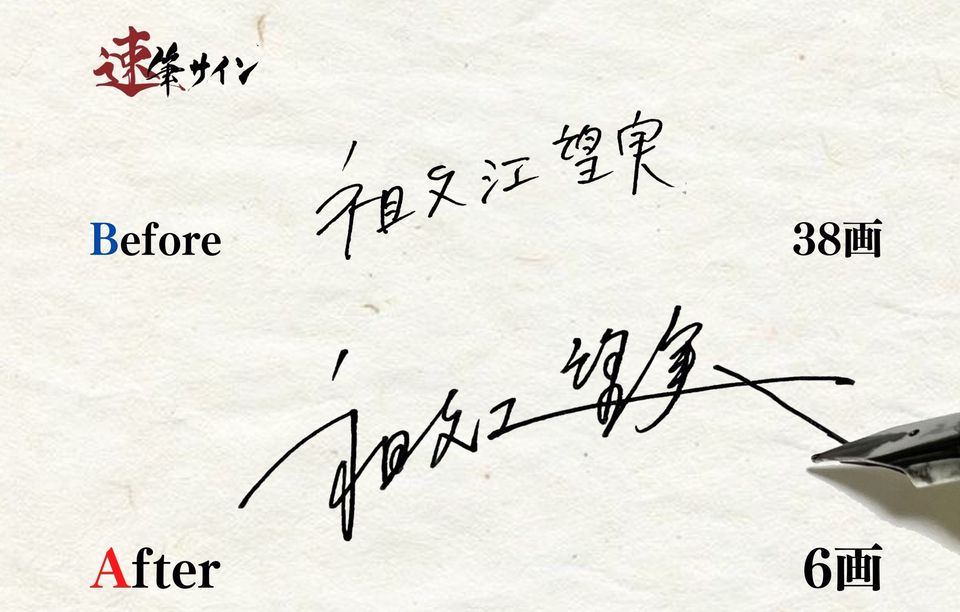 速筆サイン
祖父江望実
Before
38画
祖父江望実
After
6画